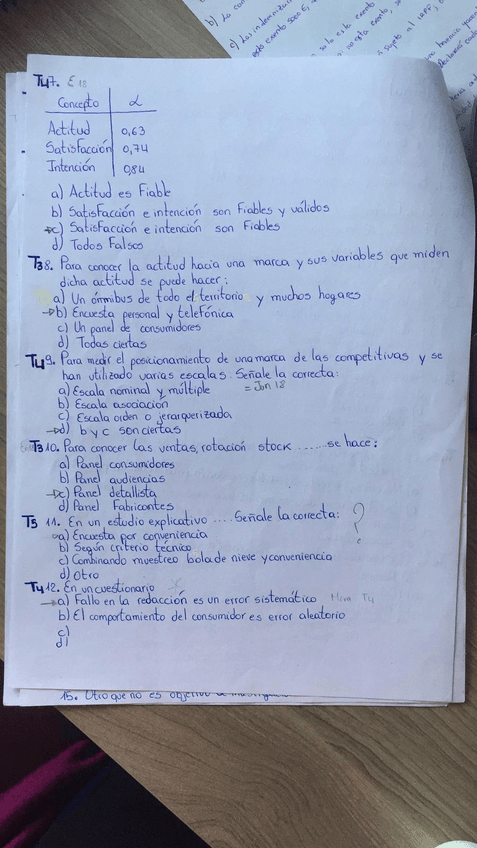 b) La con
c) Las indemnizac
T47. E 18
Concepto α
Actitud 0,63
Satisfacción 0,74
Intención 0,84
a) Actitud es Fiable
b) Satisfacción e intención son Fiables y válidos
→c) Satisfacción e intención son Fiables
d) Todos Falsos
T38. Para conocer la actitud hacia una marca y sus variables que miden
dicha actitud se puede hacer:
a) Un ómnibus de todo el territorio y muchos hogares
→b) Encuesta personal y telefónica
c) Un panel de consumidores
d) Todas ciertas
T49. Para medir el posicionamiento de una marca de las competitivas y se
han utilizado varias escalas. Señale la correcta:
a) Escala nominal y múltiple = Jun 18
b) Escala asociación
c) Escala orden o jerarquerizada
→d) b y c son ciertas
T310. Para conocer las ventas, rotación stock ...... se hace:
a) Panel consumidores
b) Panel audiencias
→c) Panel detallista
d) Panel Fabricantes
T5 11. En un estudio explicativo .... Señale la correcta: ?
a) Encuesta por conveniencia
b) Según criterio técnico
c) Combinando muestreo bola de nieve y conveniencia
d) Otro
T412. En un cuestionario
→a) Fallo en la redacción es un error sistemático T4
b) El comportamiento del consumidor es error aleatorio
c)
d)
15. Otro que no es objetivo de investigación